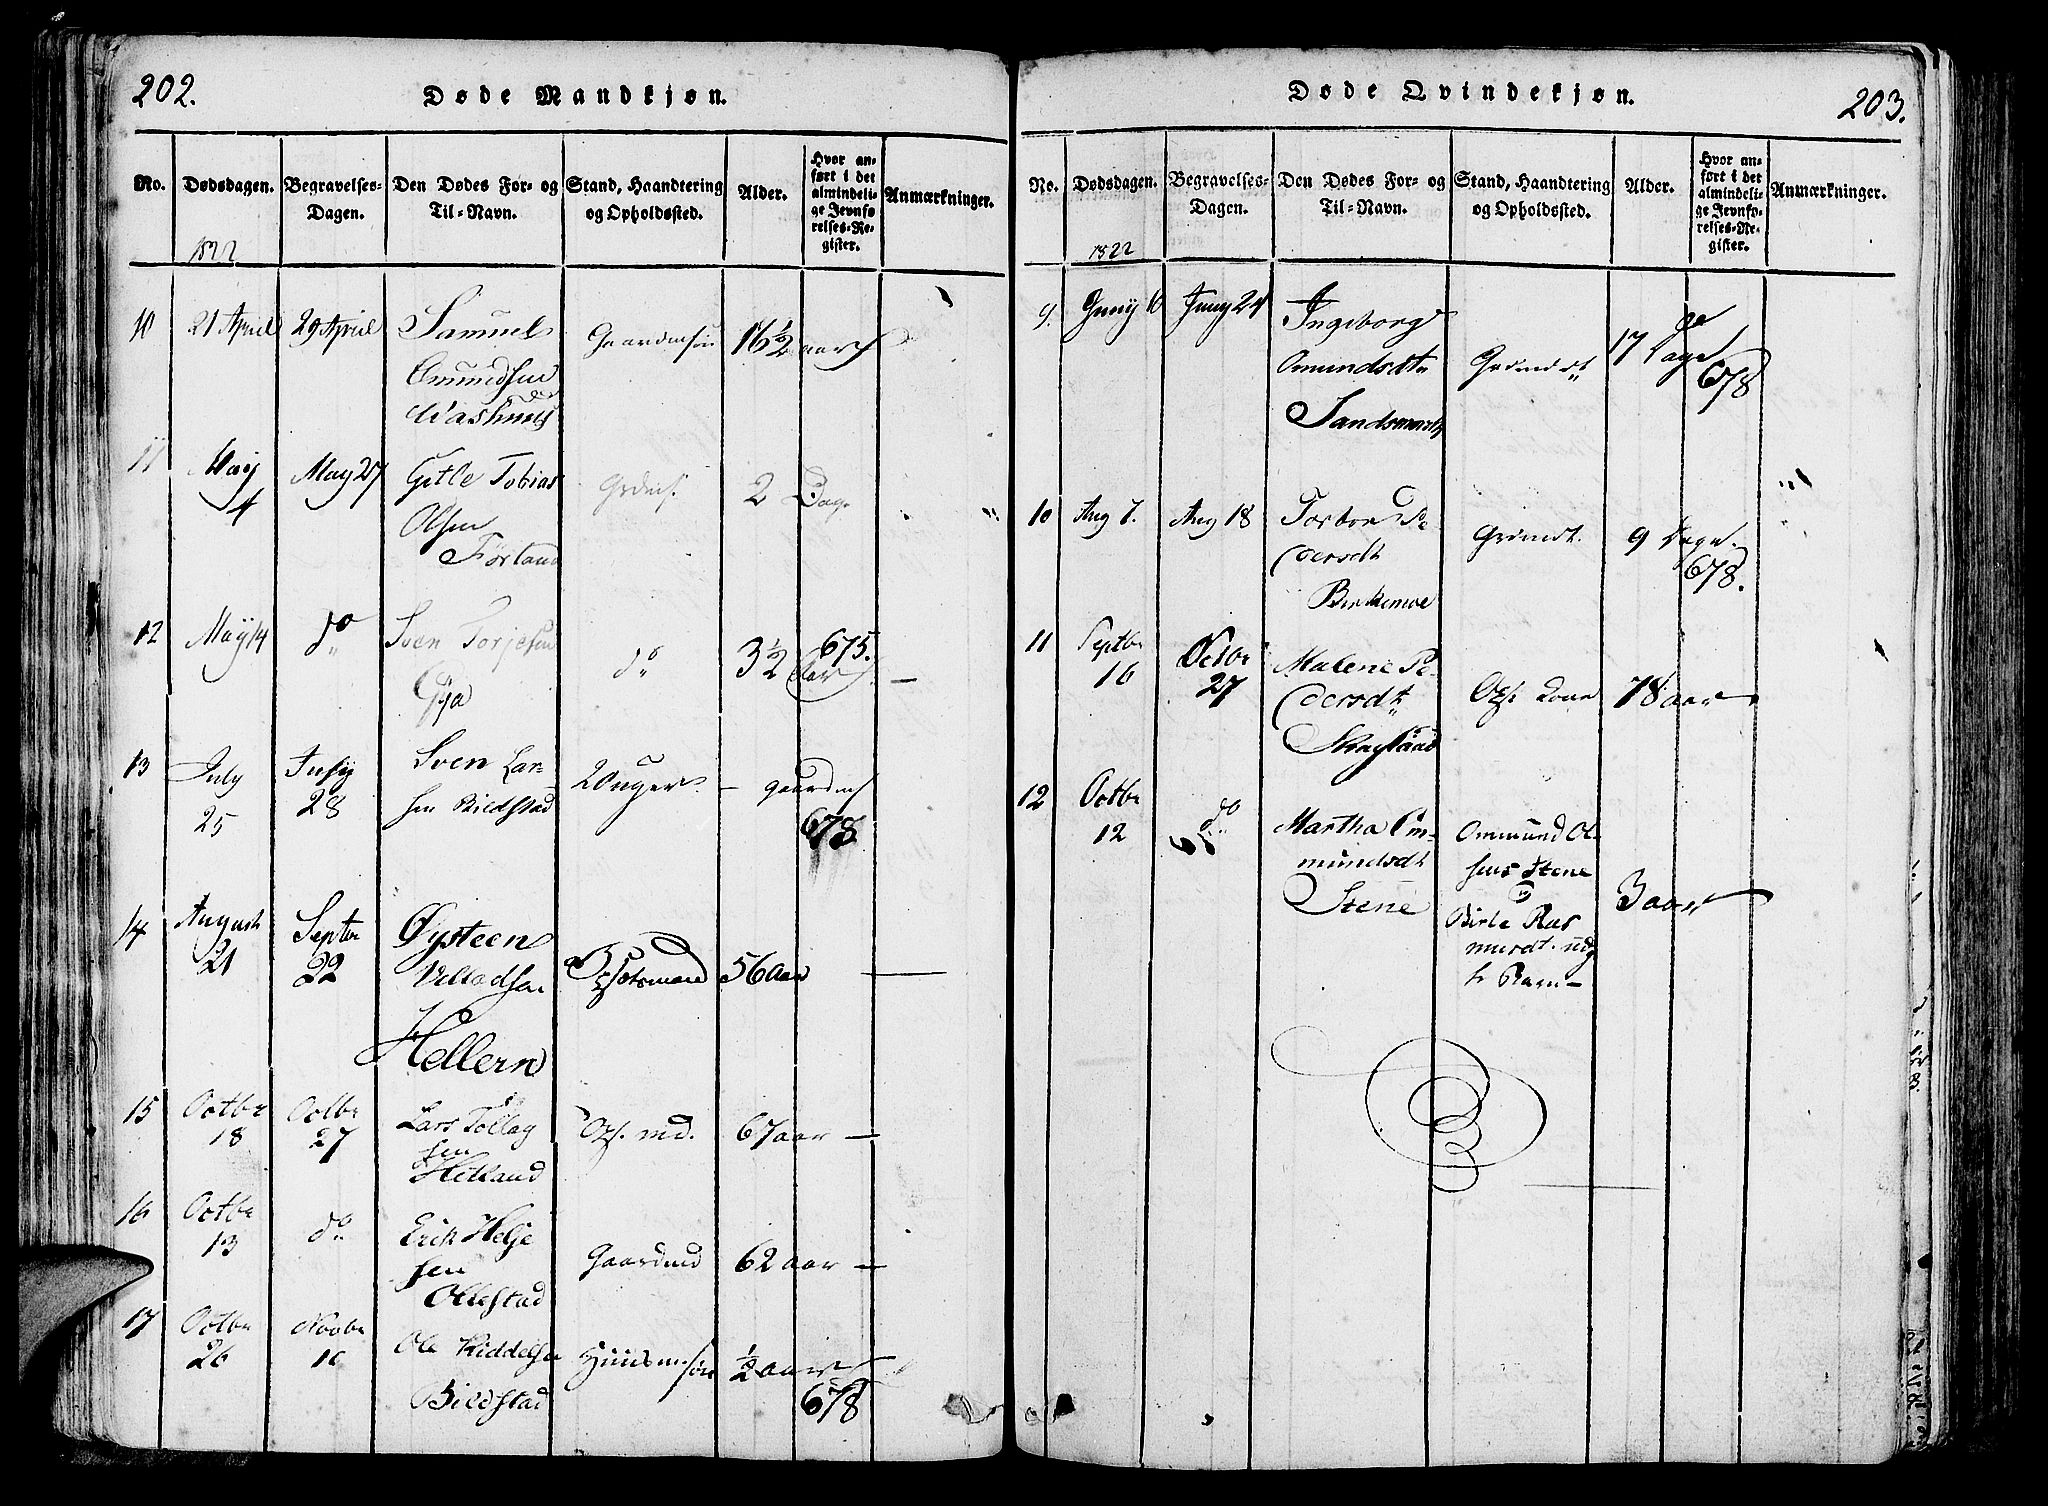 202.
Døde Mandkjøn.
No.
Dødsdagen.
Begravelses-
Dagen.
Den Dødes For- og
Til-Navn.
Stand, Haandtering
og Opholdssted.
Alder.
Hvor an-
ført i det
almindeli-
ge Jevnfø-
relses-Re-
gister.
Anmærkninger.
1822
10
21 April
29 April
Samuel
Omundsen
16½ aar
11
May
4
May 27
Gitle Tobias
Olsen
Førland
2 Dage
12
Maÿ 14
do
Sven Torjesen
Gÿa
do
3½ Aar
675.
13
July
25
July
28
Sven Lar-
sen Bildstad
20 uger
678
14
August
21
Septbr
22
Øysteen
Villadsen
Hellern
56 Aar
15
Octbr
18
Octbr
27
Lars Tollag
sen
Hetland
67 aar
16
Octbr
13
do
Erik Helje
sen
Ollestad
Gaardmd
62 aar
17
Octbr
26
Novbr
10
Ole Kiddelsen
Bildstad
Huusm søn
½ aar
678
203.
Døde Qvindekjøn.
No.
Dødsdagen.
Begravelses-
Dagen.
Den Dødes For- og
Til-Navn.
Stand, Haandtering
og Opholdssted.
Alder.
Hvor an-
ført i det
almindeli-
ge Jevnfø-
relses-Re-
gister.
Anmærkninger.
1822
9.
Juny 16
Juny 24
Ingeborg
Omundsdtr
Sandsmark
17 Dage
678
10
Aug 7.
Aug 18
Torbor Pe
dersdtr
Birkemoe
9 Dage.
678.
11
Septbr
16
Octbr
27
Malene Pe-
dersdtr
Skaystad
78 aar
12
Octbr
12
do
Martha Om-
mundsdtr
Stene
Ommund Ol-
sens Stene
Birte Ras
musdt. ud
Barn
3 aar